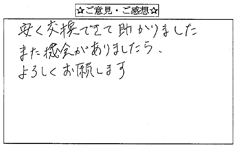 ☆ご意見・ご感想☆
安く交換できて助かりました
また機会がありましたら、
よろしくお願します